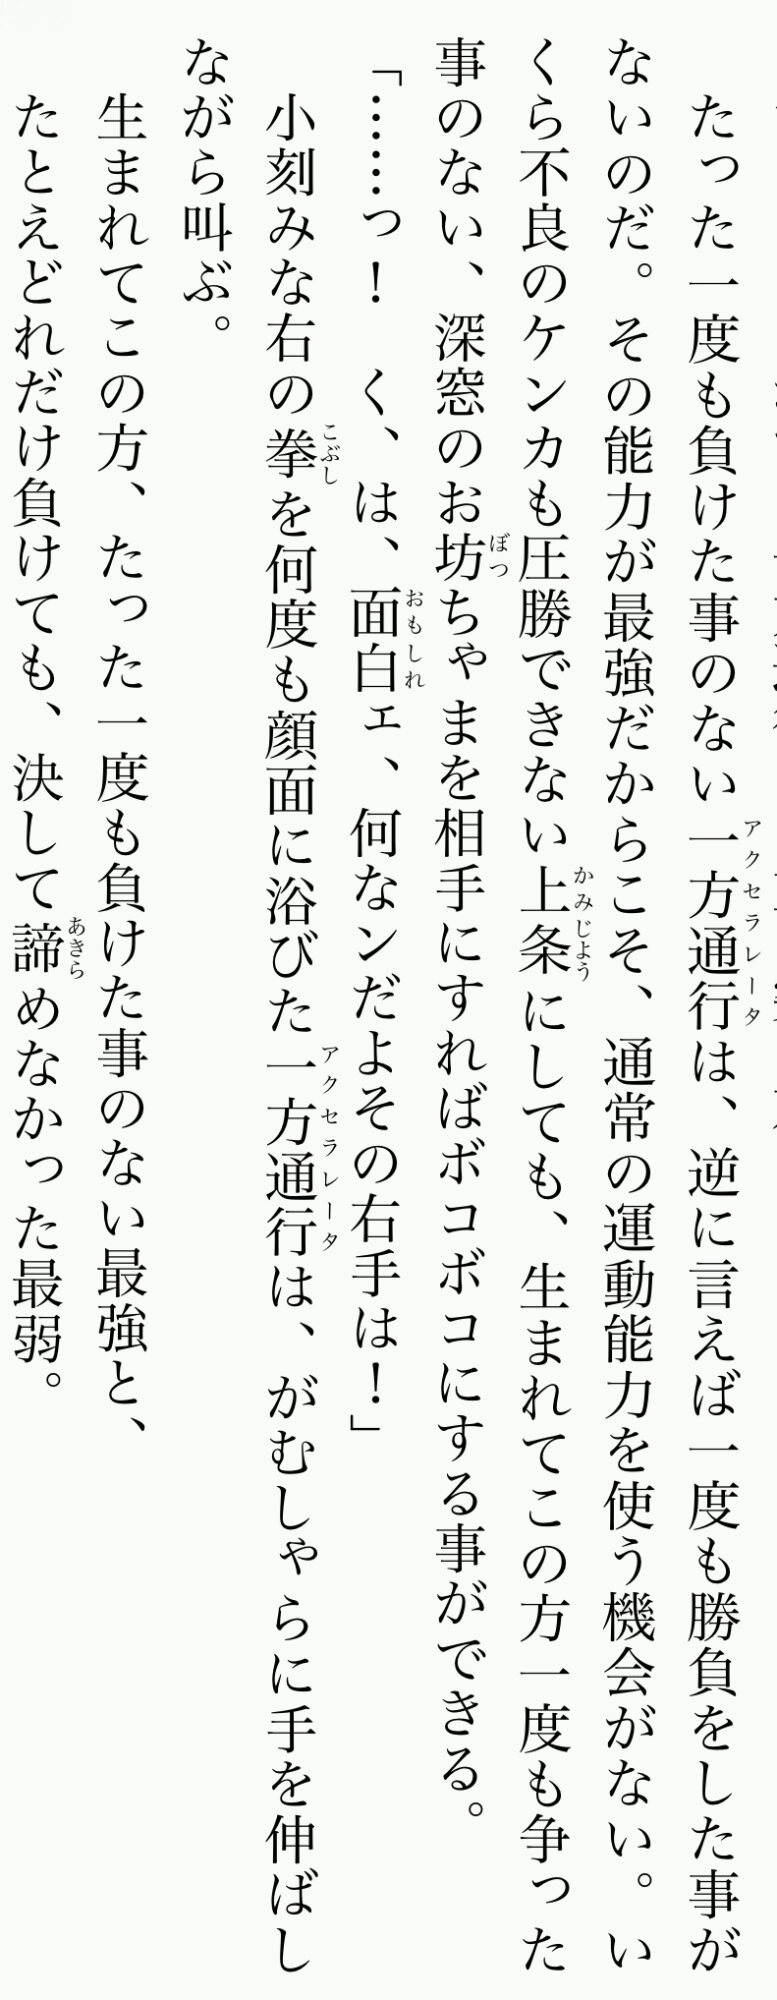 たった一度も負けた事のない一方通行は、逆に言えば一度も勝負をした事が
アクセラレータ
ないのだ。その能力が最強だからこそ、通常の運動能力を使う機会がない。い
くら不良のケンカも圧勝できない上条にしても、生まれてこの方一度も争った
かみじよう
事のない、深窓のお坊ちゃまを相手にすればボコボコにする事ができる。
ぼつ
「……っ！　く、は、面白ェ、何なンだよその右手は！」
おもしれ
小刻みな右の拳を何度も顔面に浴びた一方通行は、がむしゃらに手を伸ばし
こぶし
アクセラレータ
ながら叫ぶ。
生まれてこの方、たった一度も負けた事のない最強と、
たとえどれだけ負けても、決して諦めなかった最弱。
あきら